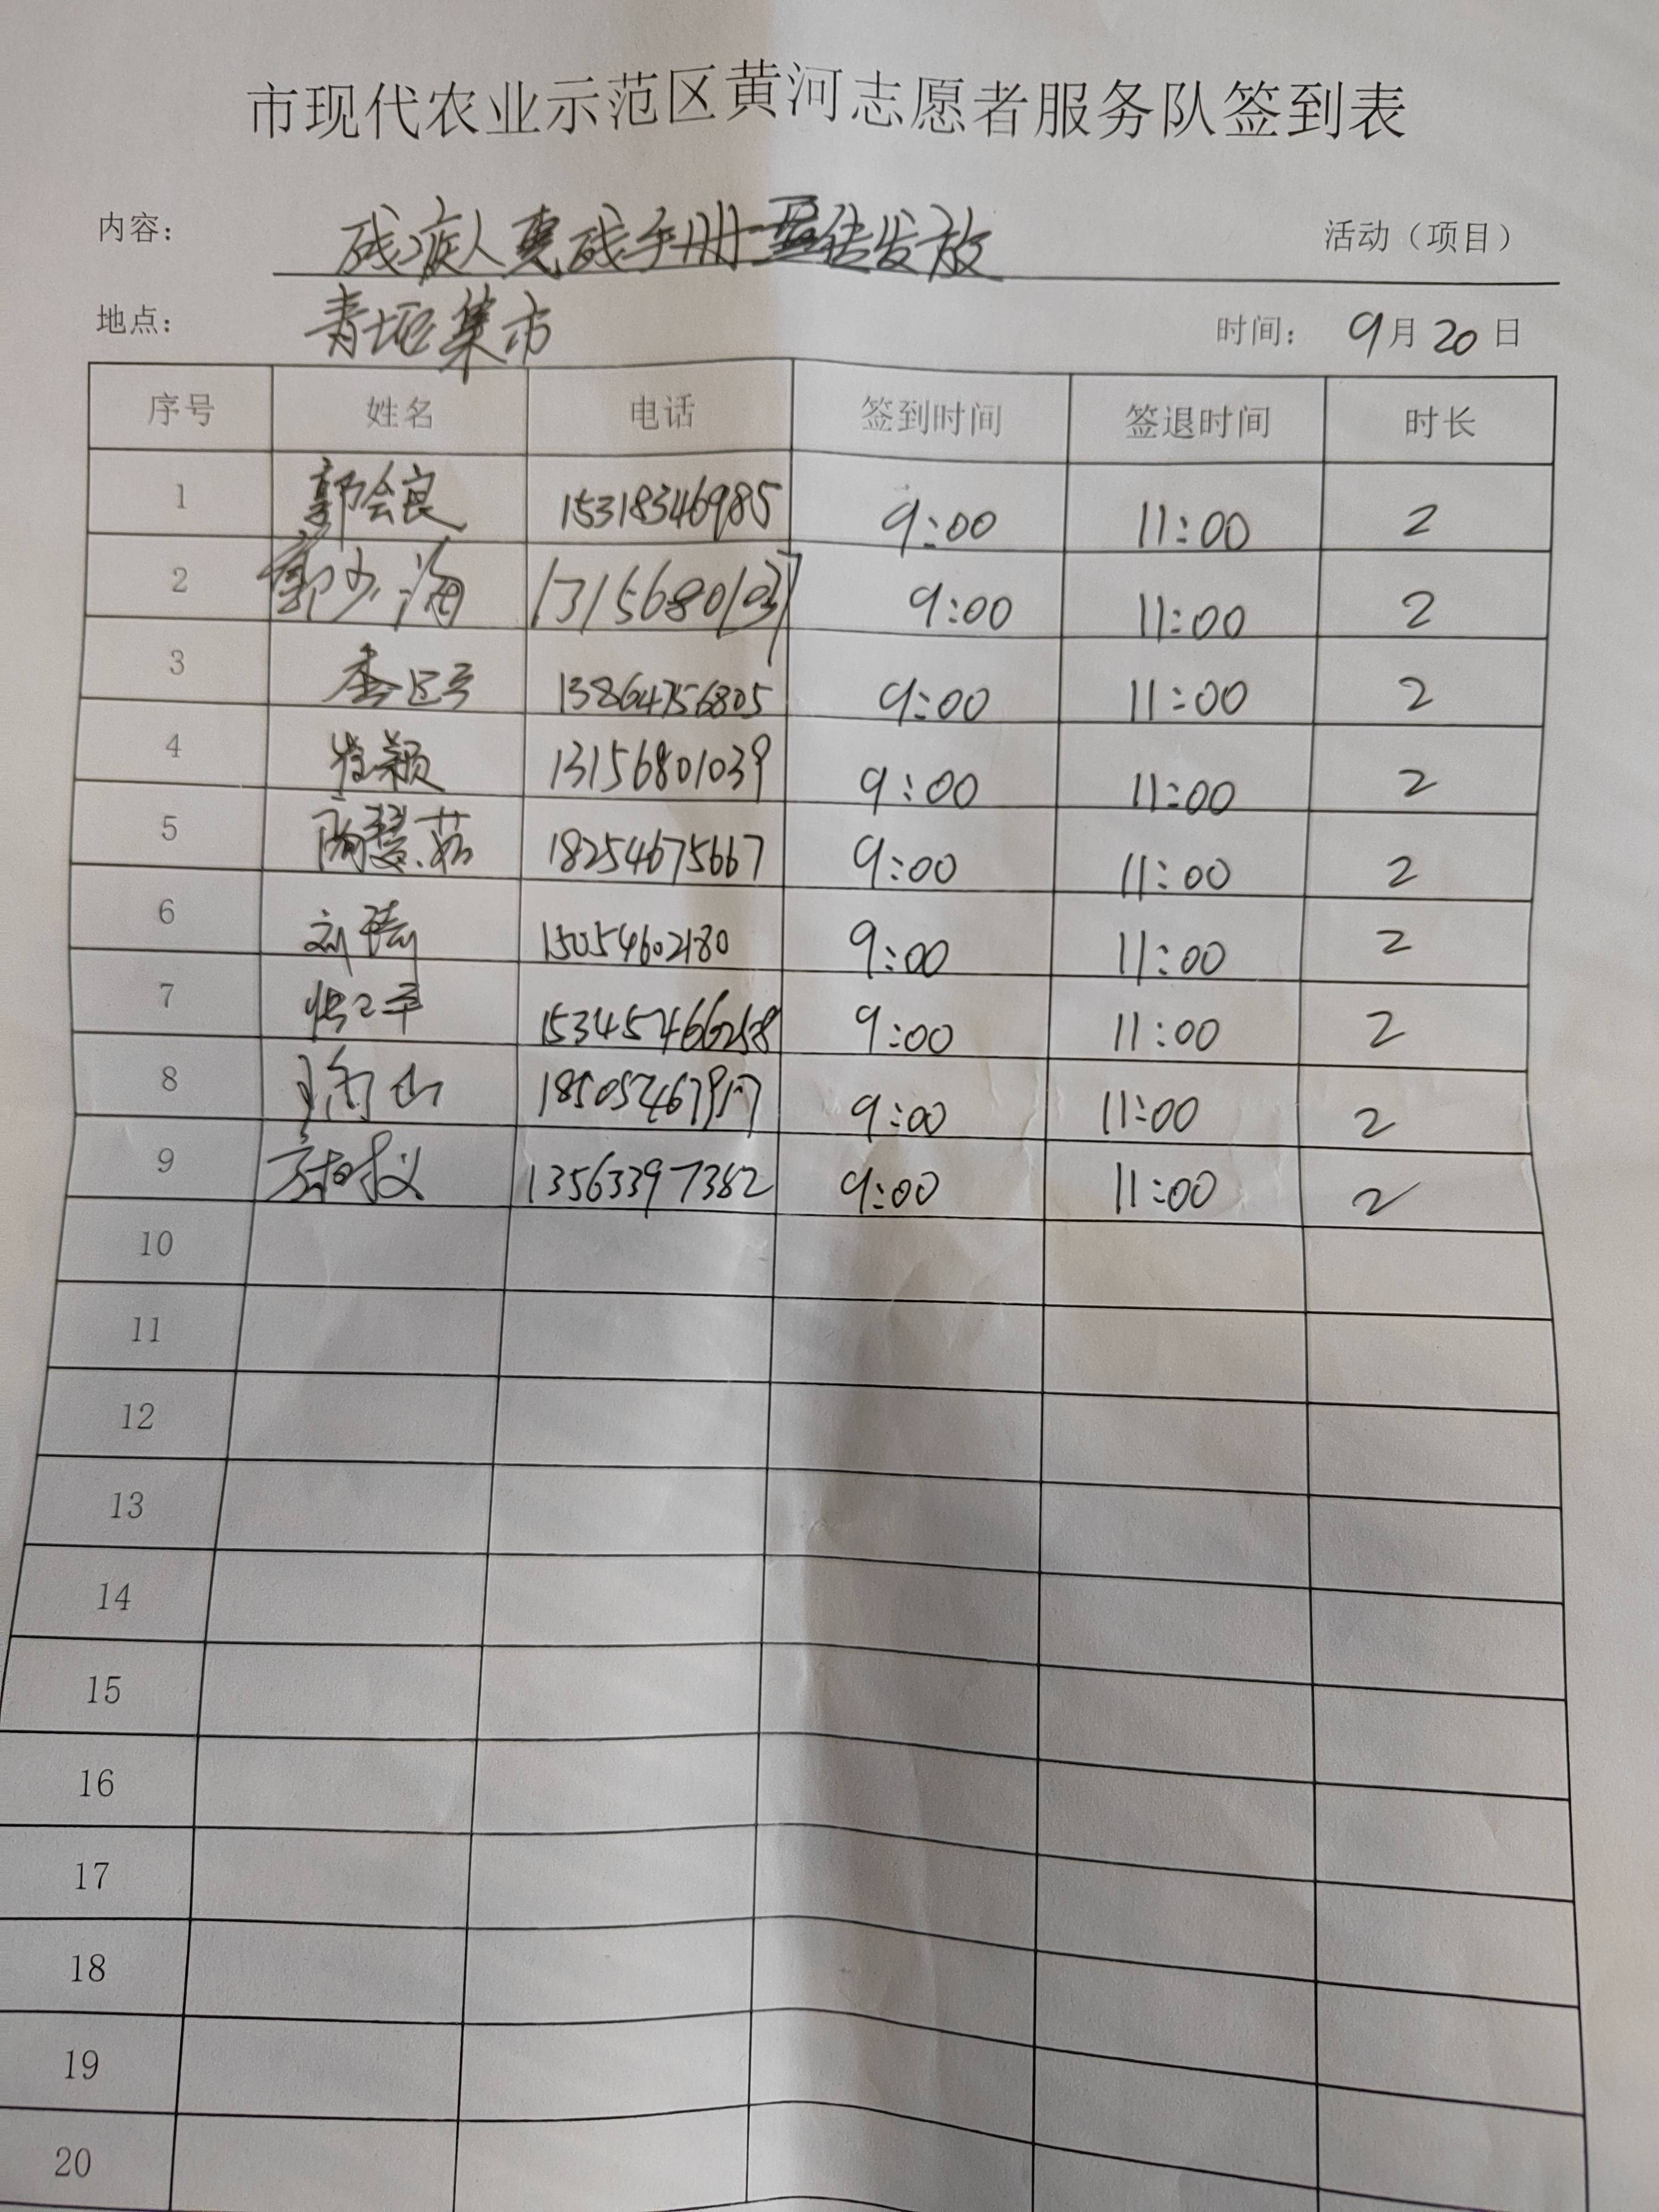 市现代农业示范区黄河志愿者服务队签到表
内容: 残疾人惠残手册宣传发放 活动（项目）
地点: 青垞集市 时间: 9月20日
序号 姓名 电话 签到时间 签退时间 时长
1 郭会良 15318346985 9:00 11:00 2
2 郭少海 9:00 11:00 2
3 13864756805 9:00 11:00 2
4 崔颖 13156801039 9:00 11:00 2
5 18254675667 9:00 11:00 2
6 15054602180 9:00 11:00 2
7 9:00 11:00 2
8 9:00 11:00 2
9 13563397382 9:00 11:00 2
10
11
12
13
14
15
16
17
18
19
20